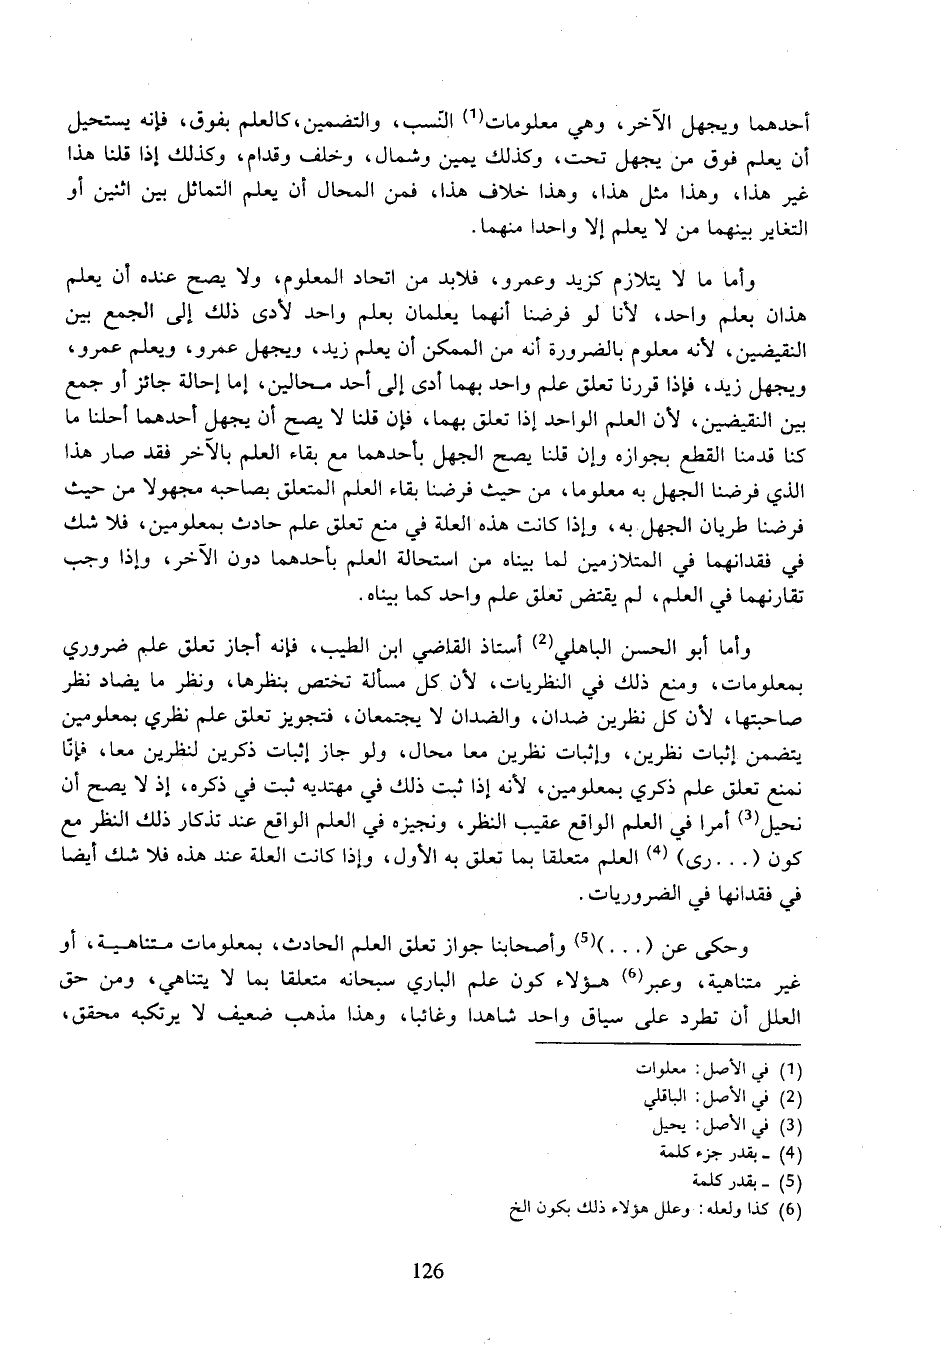 أحدهما ويجهل الآخر، وهي معلومات(1) النّسب، والتضمين،كالعلم بفوق، فإنه يستحيل
أن يعلم فوق من يجهل تحت، وكذلك يمين وشمال، وخلف وقدام، وكذلك إذا قلنا هذا
غير هذا، وهذا مثل هذا، وهذا خلاف هذا، فمن المحال أن يعلم التماثل بين اثنين أو
التغاير بينهما من لا يعلم إلا واحدا منهما.
وأما ما لا يتلازم كزيد وعمرو، فلابد من اتحاد المعلوم، ولا يصح عنده أن يعلم
هذان بعلم واحد، لأنا لو فرضنا أنهما يعلمان بعلم واحد لأدى ذلك إلى الجمع بين
النقيضين، لأنه معلوم بالضرورة أنه من الممكن أن يعلم زيد، ويجهل عمرو، ويعلم عمرو،
ويجهل زيد، فإذا قررنا تعلق علم واحد بهما أدى إلى أحد محالين، إما إحالة جائز أو جمع
بين النقيضين، لأن العلم الواحد إذا تعلق بهما، فإن قلنا لا يصح أن يجهل أحدهما أحلنا ما
كنا قدمنا القطع بجوازه وإن قلنا يصح الجهل بأحدهما مع بقاء العلم بالآخر فقد صار هذا
الذي فرضنا الجهل به معلوما، من حيث فرضنا بقاء العلم المتعلق بصاحبه مجهولا من حيث
فرضنا طريان الجهل به، وإذا كانت هذه العلة في منع تعلق علم حادث بمعلومين، فلا شك
في فقدانهما في المتلازمين لما بيناه من استحالة العلم بأحدهما دون الآخر، وإذا وجب
تقارنهما في العلم، لم يقتض تعلق علم واحد كما بيناه.
وأما أبو الحسن الباهلي(2) أستاذ القاضي ابن الطيب، فإنه أجاز تعلق علم ضروري
بمعلومات، ومنع ذلك في النظريات، لأن كل مسألة تختص بنظرها، ونظر ما يضاد نظر
صاحبتها، لأن كل نظرين ضدان، والضدان لا يجتمعان، فتجويز تعلق علم نظري بمعلومين
يتضمن إثبات نظرين، وإثبات نظرين معا محال، ولو جاز إثبات ذكرين لنظرين معا، فإنّا
نمنع تعلق علم ذكري بمعلومين، لأنه إذا ثبت ذلك في مهتديه ثبت في ذكره، إذ لا يصح أن
نحيل(3) أمرا في العلم الواقع عقيب النظر، ونجيزه في العلم الواقع عند تذكار ذلك النظر مع
كون (...رى) (4) العلم متعلقا بما تعلق به الأول، وإذا كانت العلة عند هذه فلا شك أيضا
في فقدانها في الضروريات.
وحكى عن (...)(5) وأصحابنا جواز تعلق العلم الحادث، بمعلومات متناهية، أو
غير متناهية، وعبر(6) هؤلاء كون علم الباري سبحانه متعلقا بما لا يتناهي، ومن حق
العلل أن تطرد على سياق واحد شاهدا وغائبا، وهذا مذهب ضعيف لا يرتكبه محقق،
(1) في الأصل: معلوات
(2) في الأصل: الباقلي
(3) في الأصل: يحيل
(4) ـ بقدر جزء كلمة
(5) ـ بقدر كلمة
(6) كذا ولعله: وعلل هؤلاء ذلك بكون الخ
126